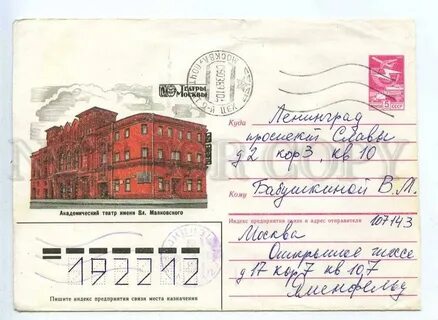 Театры
Москвы
Академический театр имени Вл. Маяковского
5 СССР
Куда Ленинград
проспект Славы
д 2 кор 3, кв 10
Кому Бабушкиной В.М.
Индекс предприятия связи и адрес отправителя 107143
Москва
Открытое шоссе
д 17 кор 7 кв 107
192212
Пишите индекс предприятия связи места назначения